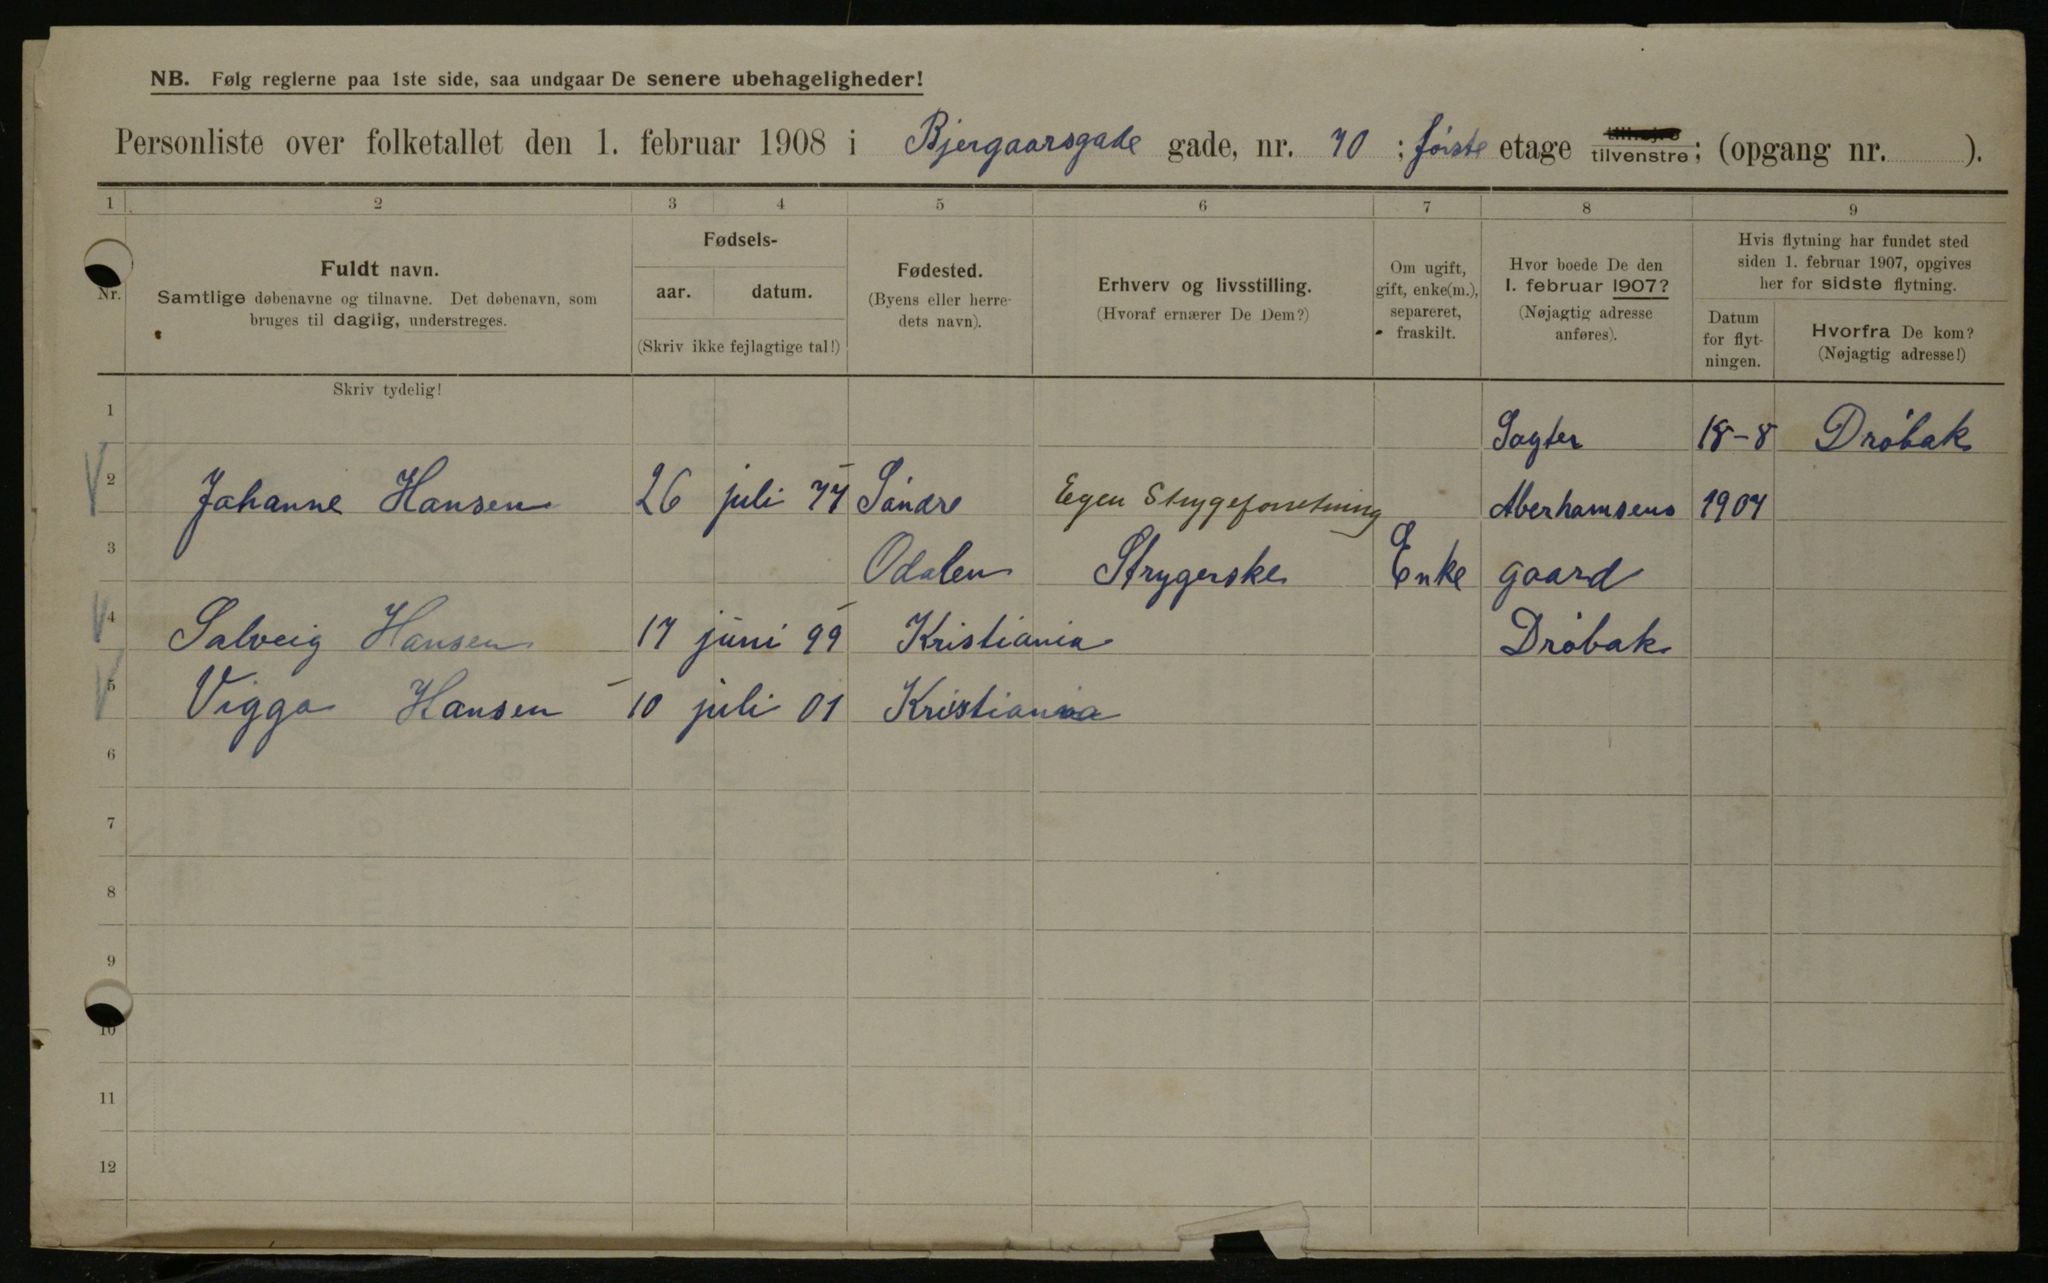 NB. Følg reglerne paa 1ste side, saa undgaar De senere ubehageligheder!
Personliste over folketallet den 1. februar 1908 i Bjergaarsgade gade, nr. 70 ; første etage tilhøjre tilvenstre; (opgang nr. ).
1 2 3 4 5 6 7 8 9
Nr.
Fuldt navn.
Samtlige døbenavne og tilnavne. Det døbenavn, som
bruges til daglig, understreges.
Fødsels-
aar. datum.
(Skriv ikke fejlagtige tal!)
Fødested.
(Byens eller herre-
dets navn).
Erhverv og livsstilling.
(Hvoraf ernærer De Dem?)
Om ugift,
gift, enke(m.),
separeret,
fraskilt.
Hvor boede De den
1. februar 1907?
(Nøjagtig adresse
anføres).
Hvis flytning har fundet sted
siden 1. februar 1907, opgives
her for sidste flytning.
Datum
for flyt-
ningen.
Hvorfra De kom?
(Nøjagtig adresse!)
Skriv tydelig!
1 Sogter 18-8 Drøbak
2 Johanne Hansen 26 juli 77 Søndre Egen Strygeforretning Aberhamsens 1907
3 Odalen Strygerske Enke gaard
4 Salveig Hansen 17 juni 99 Kristiania Drøbak
5 Viggo Hansen 10 juli 01 Kristiania
6
7
8
9
10
11
12